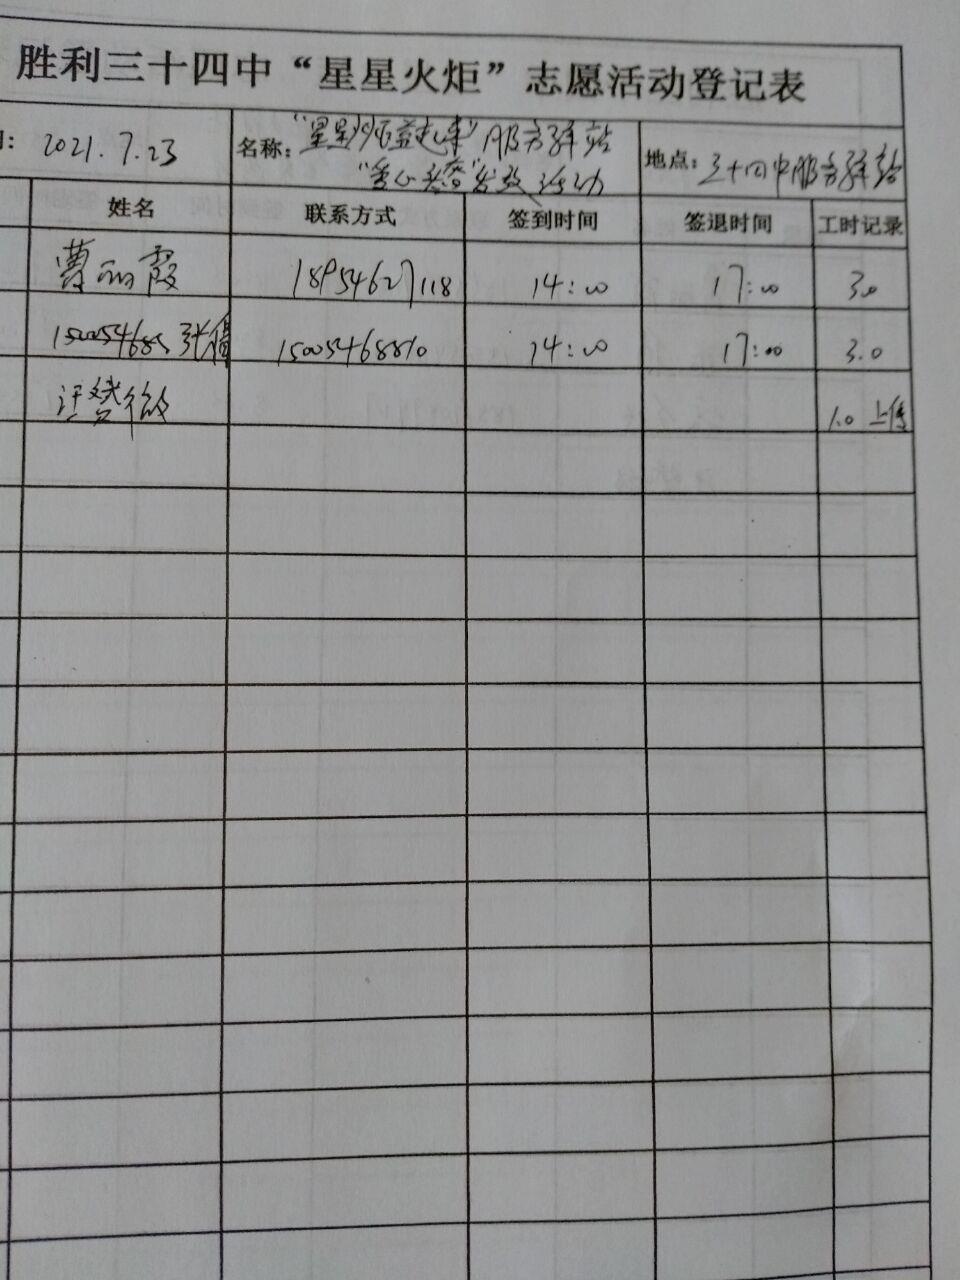 胜利三十四中“星星火炬”志愿活动登记表
间: 2021.7.23 名称: “星星火炬益起来”服务驿站 地点: 三十四中服务驿站
“爱心套餐”发放活动
姓名 联系方式 签到时间 签退时间 工时记录
曹丽霞 18954627118 14:00 17:00 3.0
150054688 张 15005468810 14:00 17:00 3.0
许赟薇 1.0 上传